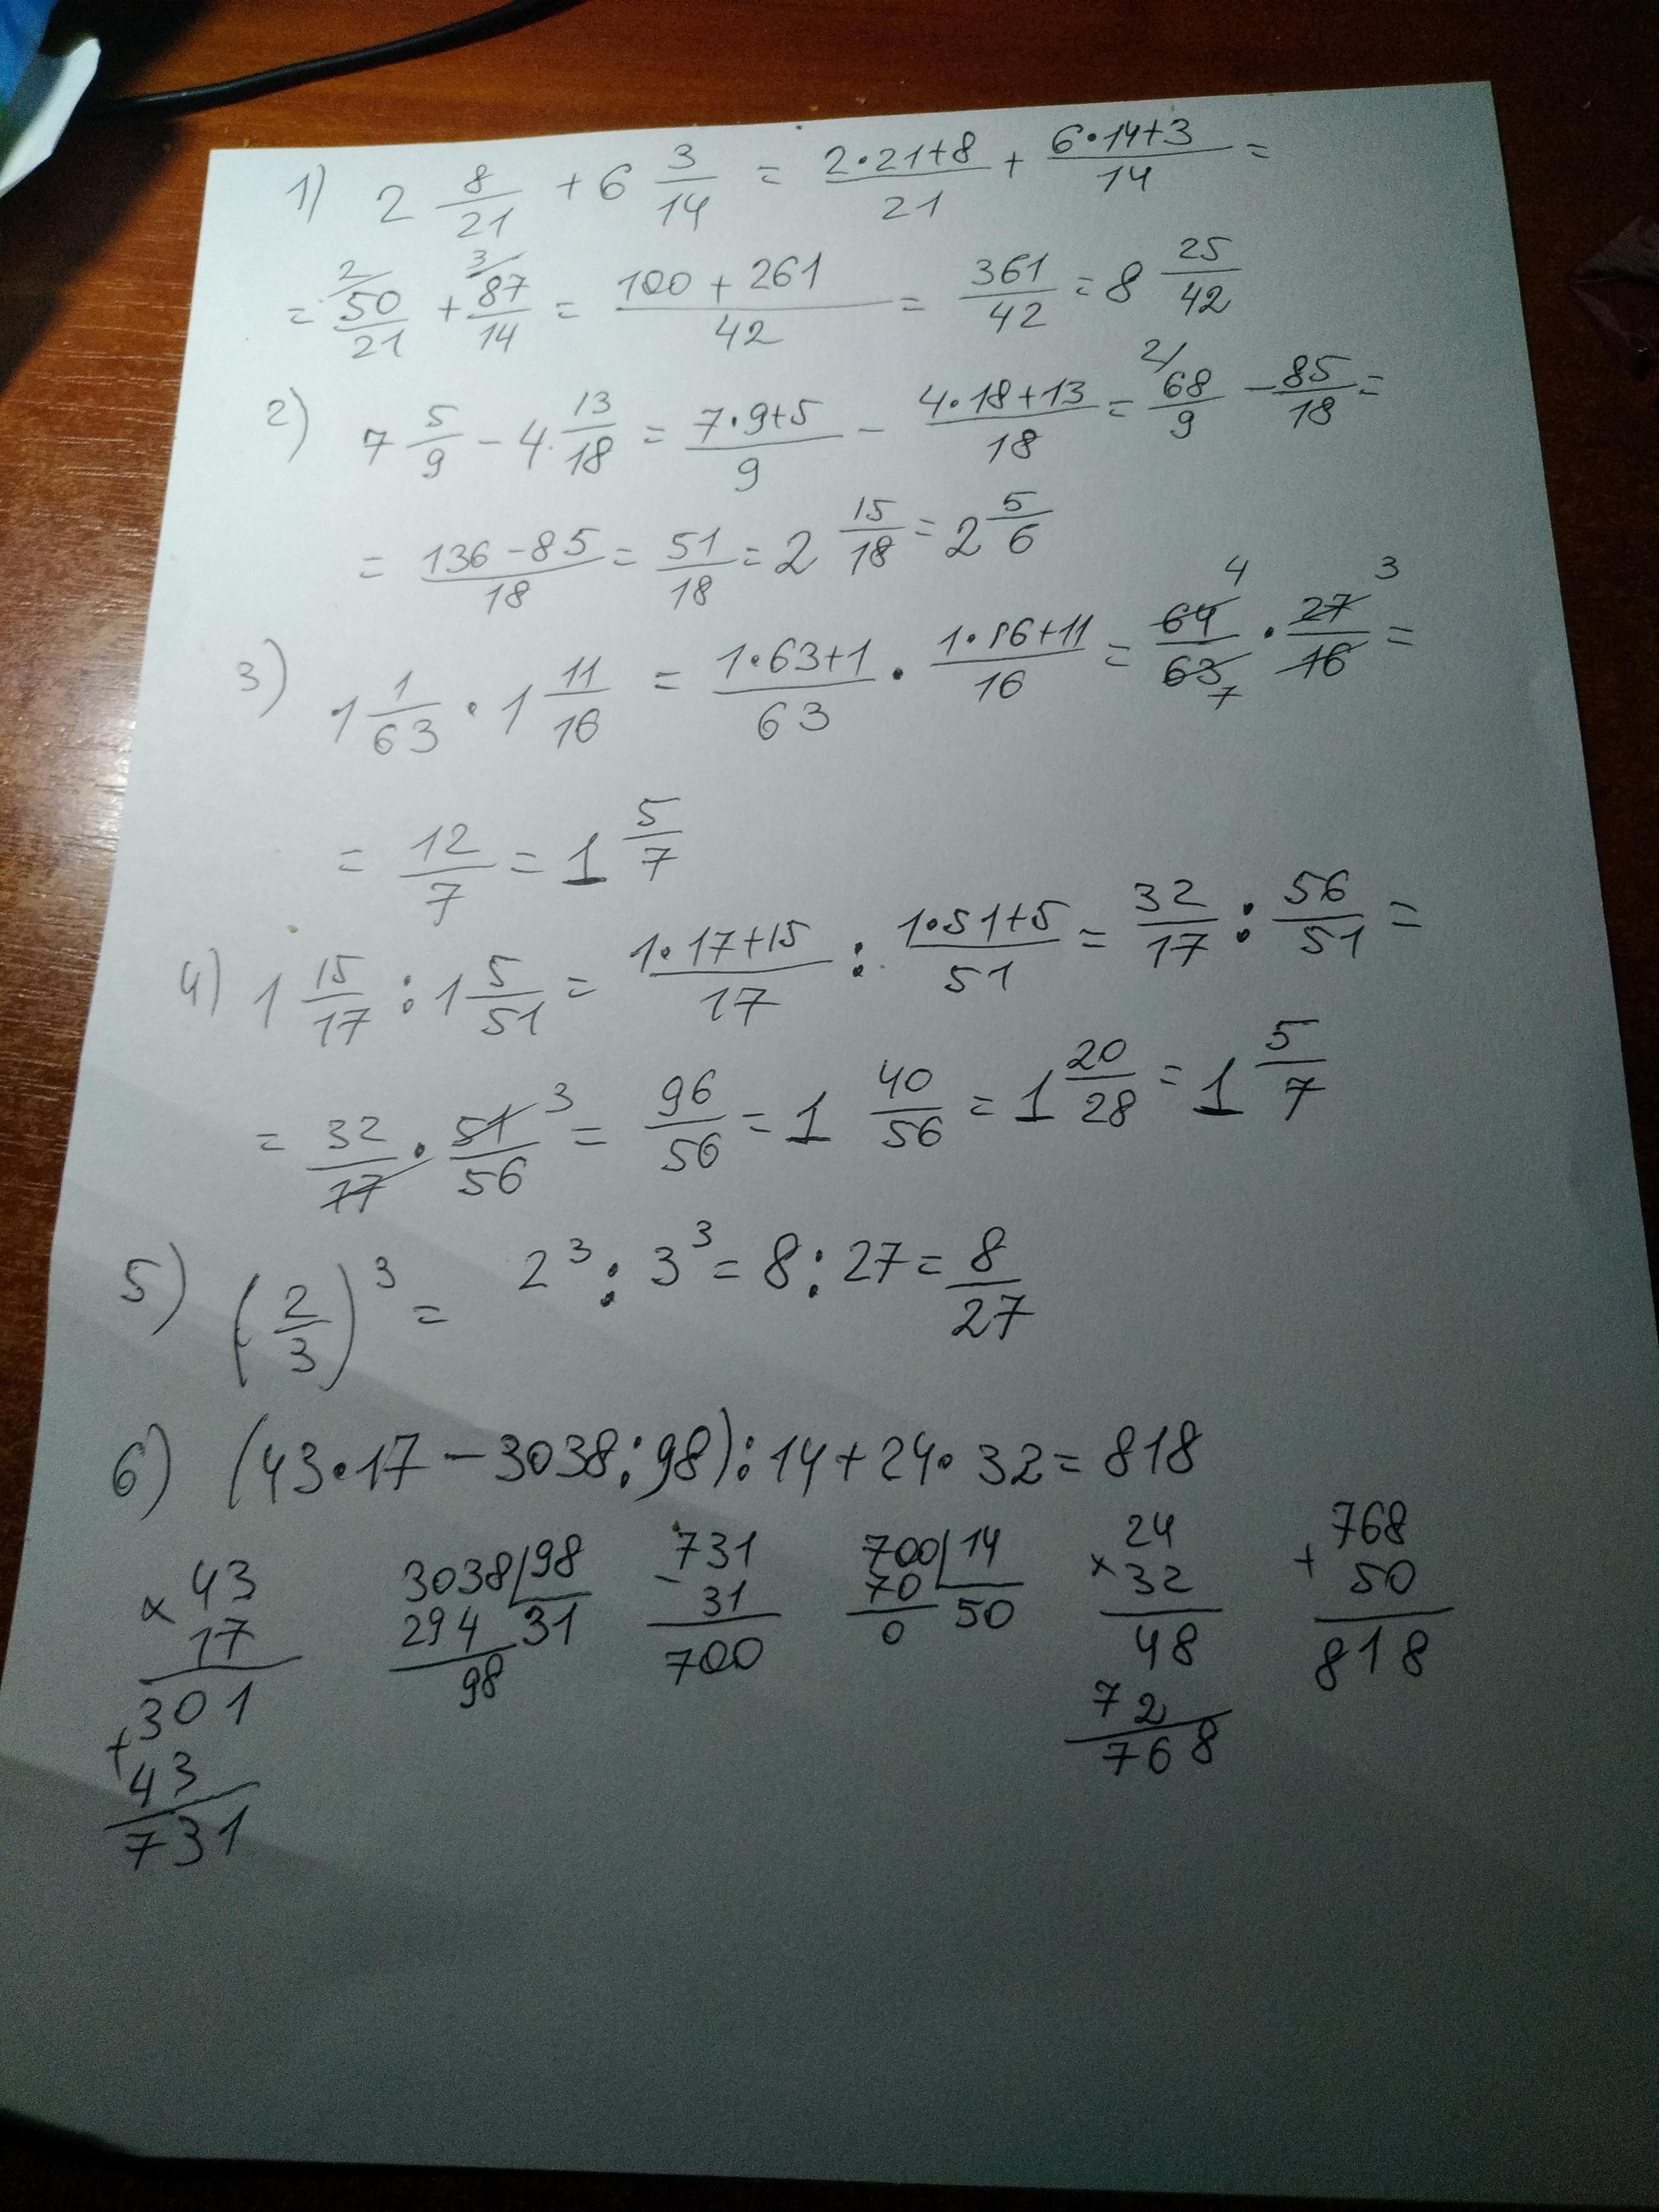 1) 2 8/21 + 6 3/14 = (2•21+8)/21 + (6•14+3)/14 =
= 2/ 50/21 + 3/ 87/14 = (100 + 261)/42 = 361/42 = 8 25/42
2) 7 5/9 - 4 13/18 = (7•9+5)/9 - (4•18+13)/18 = 2/ 68/9 - 85/18 =
= (136-85)/18 = 51/18 = 2 15/18 = 2 5/6
3) 1 1/63 • 1 11/16 = (1•63+1)/63 • (1•16+11)/16 = 64/63 4 7 • 27/16 3 =
= 12/7 = 1 5/7
4) 1 15/17 : 1 5/51 = (1•17+15)/17 : (1•51+5)/51 = 32/17 : 56/51 =
= 32/17 • 51/56 3 = 96/56 = 1 40/56 = 1 20/28 = 1 5/7
5) (2/3)³ = 2³ : 3³ = 8 : 27 = 8/27
6) (43•17-3038:98):14+24•32=818
× 43
17
301
+ 43
731
3038 98
294 31
98
- 731
31
700
700 14
70 50
0
24
× 32
48
72
768
768
+ 50
818